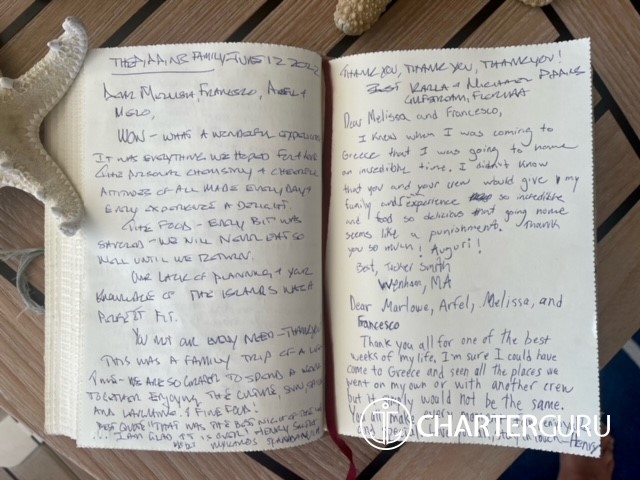 THE FAMILY JUNE 12 2022
DEAR MELISSA, FRANCESCO, ARFEL +
MELO,
WOW - WHAT A WONDERFUL EXPERIENCE
IT WAS EVERYTHING WE HOPED FOR + MORE
THE PERSONAL CHEMISTRY + CHEERFUL
ATTITUDES OF ALL MADE EVERY DAY +
EVERY EXPERIENCE A DELIGHT.
THE FOOD - EVERY BIT WAS
SAVORED - WE WILL NEVER EAT SO
WELL UNTIL WE RETURN.
OUR LACK OF PLANNING + YOUR
KNOWLEDGE OF THE ISLANDS WAS A
PERFECT FIT.
YOU MET OUR EVERY NEED - THANK YOU
THIS WAS A FAMILY TRIP OF A LIFE
TIME - WE ARE SO TO SPEND A WEEK
TOGETHER ENJOYING THE CULTURE, SUN,
AND LAUGHING + FINE FOOD!
BEST QUOTE "THAT WAS THE BEST NIGHT OF
... I AM GLAD IT IS OVER! HENRY SMITH
MYKONOS
THANK YOU, THANK YOU, THANK YOU!
BEST KARLA + MICHAEL
GULFSTREAM, FLORIDA
Dear Melissa and Francesco,
I knew when I was coming to
Greece that I was going to have
an incredible time, I didn't know
that you and your crew would give my
family an experience so incredible
and food so delicious that going home
seems like a punishment. Thank
you so much! Auguri!
Best, Tucker Smith
Wenham, MA
Dear Marlowe, Arfel, Melissa, and
Francesco
Thank you all for one of the best
weeks of my life, I'm sure I could have
come to Greece and seen all the places we
went on my own or with another crew
but it would not be the same.
You
and touch - Henry
CHARTERGURU